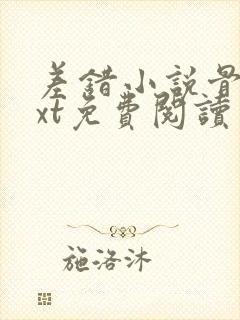 差錯小說最
xt免費閱讀
施洛沐